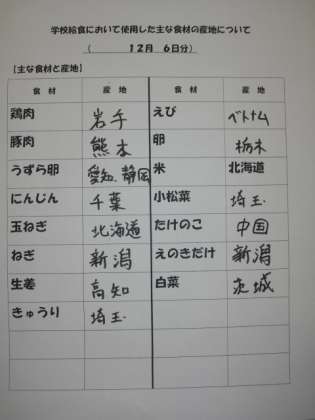 学校給食において使用した主な食材の産地について
（　　　１２月　６日分）
【主な食材と産地】
食材　産地　食材　産地
鶏肉　岩手　えび　ベトナム
豚肉　熊本　卵　栃木
うずら卵　愛知、静岡　米　北海道
にんじん　千葉　小松菜　埼玉
玉ねぎ　北海道　たけのこ　中国
ねぎ　新潟　えのきだけ　新潟
生姜　高知　白菜　茨城
きゅうり　埼玉